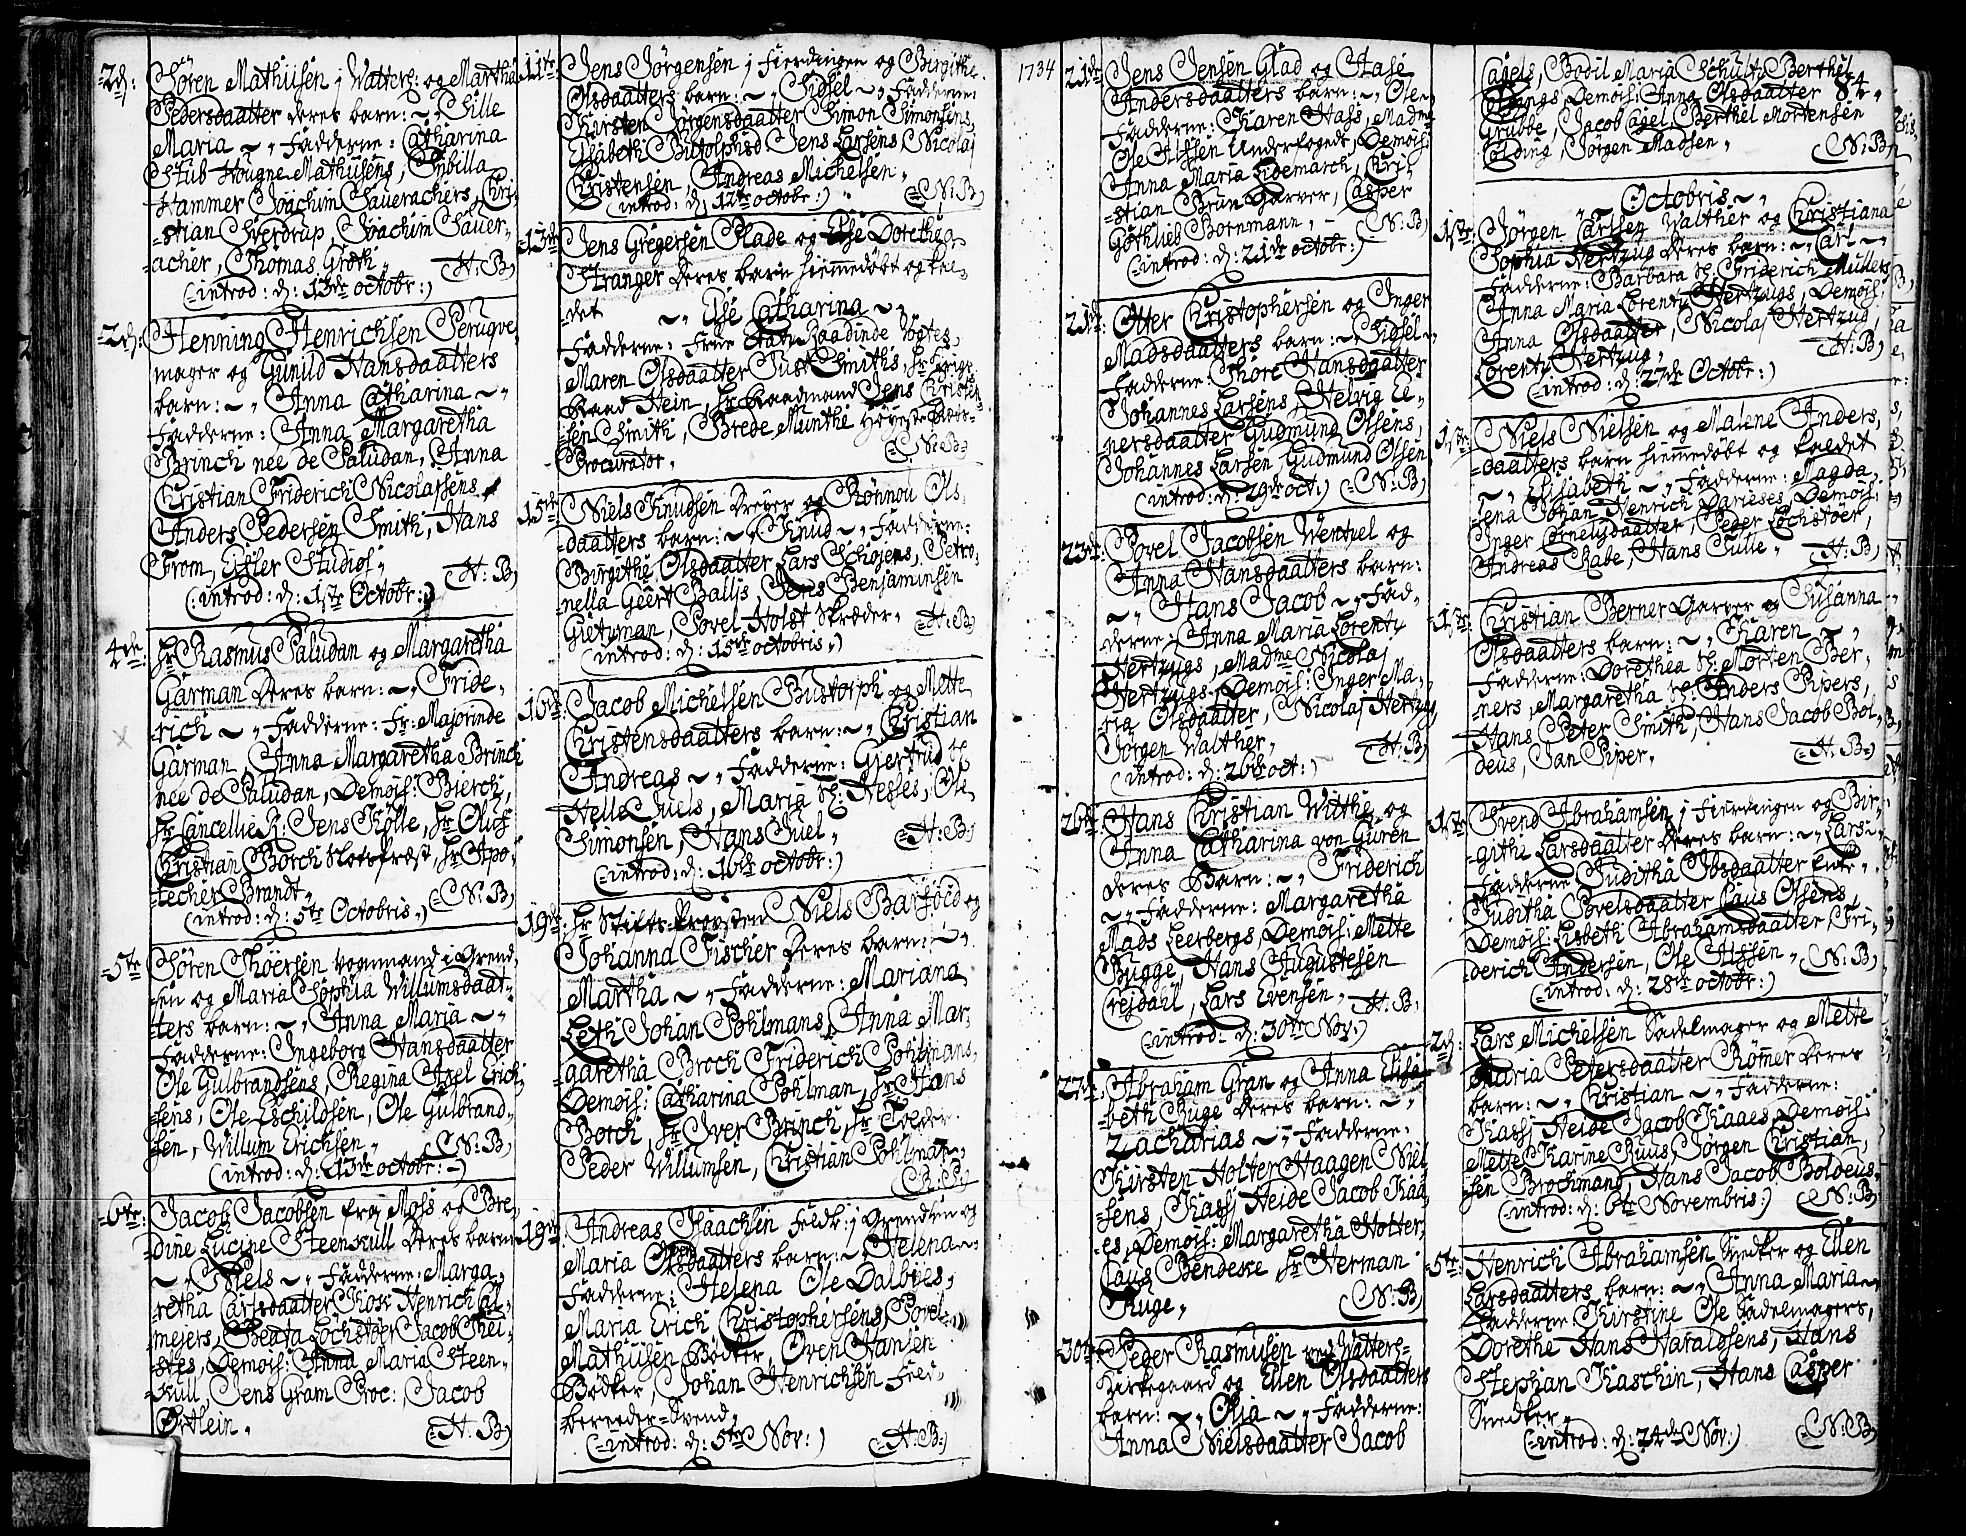 2d: Sören Mathiisen j Watters: og Martha
Pedersdaatter deres barn: ~ Sille
Maria ~ Fadderne: Catharina
Stub Hougne Mathiisens, Sibilla
Hammer Joachim Sauerachers, Chri-
-stian Sverdrup, Joachim Sauer-
acher, Thomas Groth,
(introd: d: 13de octobr:) (H:B)
2d: Henning Henrichsen Peruqve
mager og Gunild Hansdaatters
barn: ~ Anna Catharina ~
Fadderne: Anna Margaretha
Brinch nee de Paludan, Anna
Christian Friderich Nicolajsens,
Anders Pedersen Smith, Hans
From, Studios:
(introd: d: 1ste Octobr:) (H:B)
4de: Hr Rasmus Paludan og Margaretha
Garman deres barn: ~ Fride-
rich ~ Fadderne: Fr: Majorinde
Garman, Anna Margaretha Brinch
nee de Paludan, Demois: Bierch,
Hr Cancellie R: Jens Kölle, Hr Oluf
Christian Borch Slotspræst, Hr Apo-
techer Brandt,
(introd: d: 5te Octobris,) (N:B)
5te Sören Thoersen vognmand i Grend-
sen og Maria Sophia Willumsdaat-
ters barn: ~ Anna Maria ~
Fadderne: Ingeborg Hansdaatter
Ole Gulbrandsens, Regina Axel Erich-
sens, Ole Eschildsen, Ole Gulbrand-
sen, Willum Erichsen, (N:B)
(introd: d: 13de octobr:)
6te: Jacob Jacobsen fra Moss og Bre-
dine Lucine Steenkull deres barn
~ Niels ~ Fadderne: Marga-
retha Carlsdaatter Henrich Al-
mejers, Beata Lochstöer Jacob
Demois: Anna Maria Steen-
kull, Jens Gram Proc:, Jacob
Örtlein. (H:B)
11te Jens Jörgensen j Fierdingen og Birgithe
Olsdaatters barn: ~ Sidsel ~ Fadderne:
Kirsten Jörgensdaatter Simon Simonsens,
Elsabeth Jens Larsens, Nicolaj
Christensen, Andreas Michelsen,
(introd: d: 12te octobr:) (N:B)
13de Jens Gregersen Plade og Else Dorethea
Stranger deres barn hiemmedöbt og kal-
det ~ Else Catharina ~
Fadderne: Frue Etatz Raadinde Vogtes,
Maren Olsdaatter Just Smiths,
Raad Hein, Hr Raadmand Jens Christen-
sen Smith, Brede Munthe
Procurator. (N:B)
15de Niels Knudsen Dreyer og Rönnou Ols-
daatters barn: ~ Knud ~ Fadderne:
Birgithe Olsdaatter Lars Petro-
nella Geert Ballis, Jens Benjaminsen
Gietzman, Povel Holst Skræder, (H:B)
(introd: d: 15de octobris,)
16de Jacob Michelsen Bustorph og Mette
Christensdaatters barn: ~ Christian
Andreas ~ Fadderne: Giertrud
Helle Maria Hesses, Ole
Simonsen, Hans Juel, (H:B)
(introd: d: 16de octobr:)
19de Hr Stifts Provsten Niels Barfoed og
Johanna Fischer deres barn: ~
Martha ~ Fadderne: Mariana
Leth Johan Pohlmans, Anna Mar-
garetha Broch Friderich Pohlmans,
Demois: Catharina Pohlman, Hr Hans
Borch, Hr Iver Brinch, Hr Tolder
Peder Willumsen, Christian Pohlman,
19de Andreas Isaachsen j Grendsen og
Maria Olsdaatters barn: ~ Helena ~
Fadderne: Helena Ole Dalböes,
Maria Erich Christophersens, Povel
Mathiisen Bödker, Oven Hansen
Bödker, Johan Henrichsen Feld-
bereeder-Svend,
(introd: d: 5te Nov:) (H:B)
1734
21de Jens Jensen Glad og Hase
Andersdaatters barn: ~ Ole ~
Fadderne: Karen Hass, Madme
Ole Alssen Underfogedt, Demois:
Anna Maria Lidemarch, Chri-
-stian Brun Garver, Casper
Gothlieb Bornmann, (N:B)
(introd: d: 21de octobr:)
21de Otter Christophersen og Inger
Madsdaatters barn: ~ Sidsel ~
Fadderne: Thore Hansdaatter
Johannes Larsens, Helvig Ei-
nersdaatter Gudmund Olsens,
Johannes Larsen, Gudmund Olsen
(introd: d: 29de oct:) (N:B)
23de Povel Jacobsen Wentzel og
Anna Hansdaatters barn:
~ Hans Jacob ~ Fad-
derne: Anna Maria Lorentz
Hertzugs, Madme Nicolaj
Hertzugs, Demois: Inger Ma-
ria Olsdaatter, Nicolaj Hertzug,
Jörgen Walther, (H:B)
(introd: d: 26de oct:)
26de Hans Christian Withe og
Anna Catharina von Güren
deres Barn: ~ Friderich
~ Fadderne: Margaretha
Mads Leerbergs, Demois: Mette
Bugge, Hans Augustesen
Crejdahl, Lars Evensen, (H:B)
(introd: d: 30te Nov:)
27de Abraham Gran og Anna Elisa-
beth Ruge deres barn: ~
Zacharias ~ Fadderne:
Kirsten Holter Haagen Niel-
sens, Heide Jacob Kaa-
es, Demois: Margaretha Holter,
Claus Bendeke Hr Herman
Ruge, (N:B)
30te Peder Rasmusen ved Watters-
Kirkegaard og Ellen Olsdaatters
barn: ~ Olia ~ Fadderne:
Anna Nielsdaatter Jacob
Cagels, Bodil Maria Schultz Berthel
Demois: Anna Olsdaatter 84.
Grubbe, Jacob Cagel, Berthel Mortensen
Colding, Jörgen Madsen, (N:B)
~ Octobris ~
1ste: Jörgen Carlsen Walther og Christiana
Sophia Hertzug deres barn: ~ Carl ~
Fadderne: Barbara Friderich Müllers
Anna Maria Lorentz Hertzugs, Demois:
Anna Olsdaatter, Nicolaj Hertzug,
Lorentz Hertzug, (H:B)
(introd: d: 27de Octobr:)
1ste: Niels Nielsen og Malene Anders-
daatters barn hiemmedöbt og kaldet
~ Elisabeth ~ Fadderne: Magda-
lena Johan Henrich Darieses, Demois:
Inger Cornelysdaatter, Peder Lochstöer,
Andreas Rabe, Hans Tulle, (H:B)
1ste: Christian Berner Garver og Susanna
Olsdaatters barn: ~ Karen ~
Fadderne: Dorethea Morten Ber-
ners, Margaretha Anders Pipers,
Hans Peter Smith, Hans Jacob Bol-
deus, Jan Piper. (H:B)
1ste Svend Abrahamsen j Fierdingen og Bir-
githe Larsdaatter deres barn: ~ Lars ~
Fadderne: Juditha Ibsdaatter Enke,
Juditha Povelsdaatter Claus Olsens
Demois: Lisbeth Abrahamsdaatter, Fri-
derich Andersen, Ole Alssen, (N:B)
(introd: d: 28de octobr:)
2d: Lars Michelsen Sadelmager og Mette
Maria Petersdaatter Römer deres
barn: ~ Christian ~ Fadderne:
Heide Jacob Kaaes, Demois:
Mette Karine Ruus, Jörgen Christian-
sen Brochmand, Hans Jacob Boldeus,
(introd: d: 6te Novembris:) (N:B)
5te: Henrich Abrahamsen Snedker og Ellen
Larsdaatters barn: ~ Anna Maria ~
Fadderne: Kirstine Ole Sadelmagers,
Dorethe Hans Haraldsens, Hans
Stephan Kaschin, Hans Casper
Snedker,
(introd: d: 24de Nov:) (N:B)